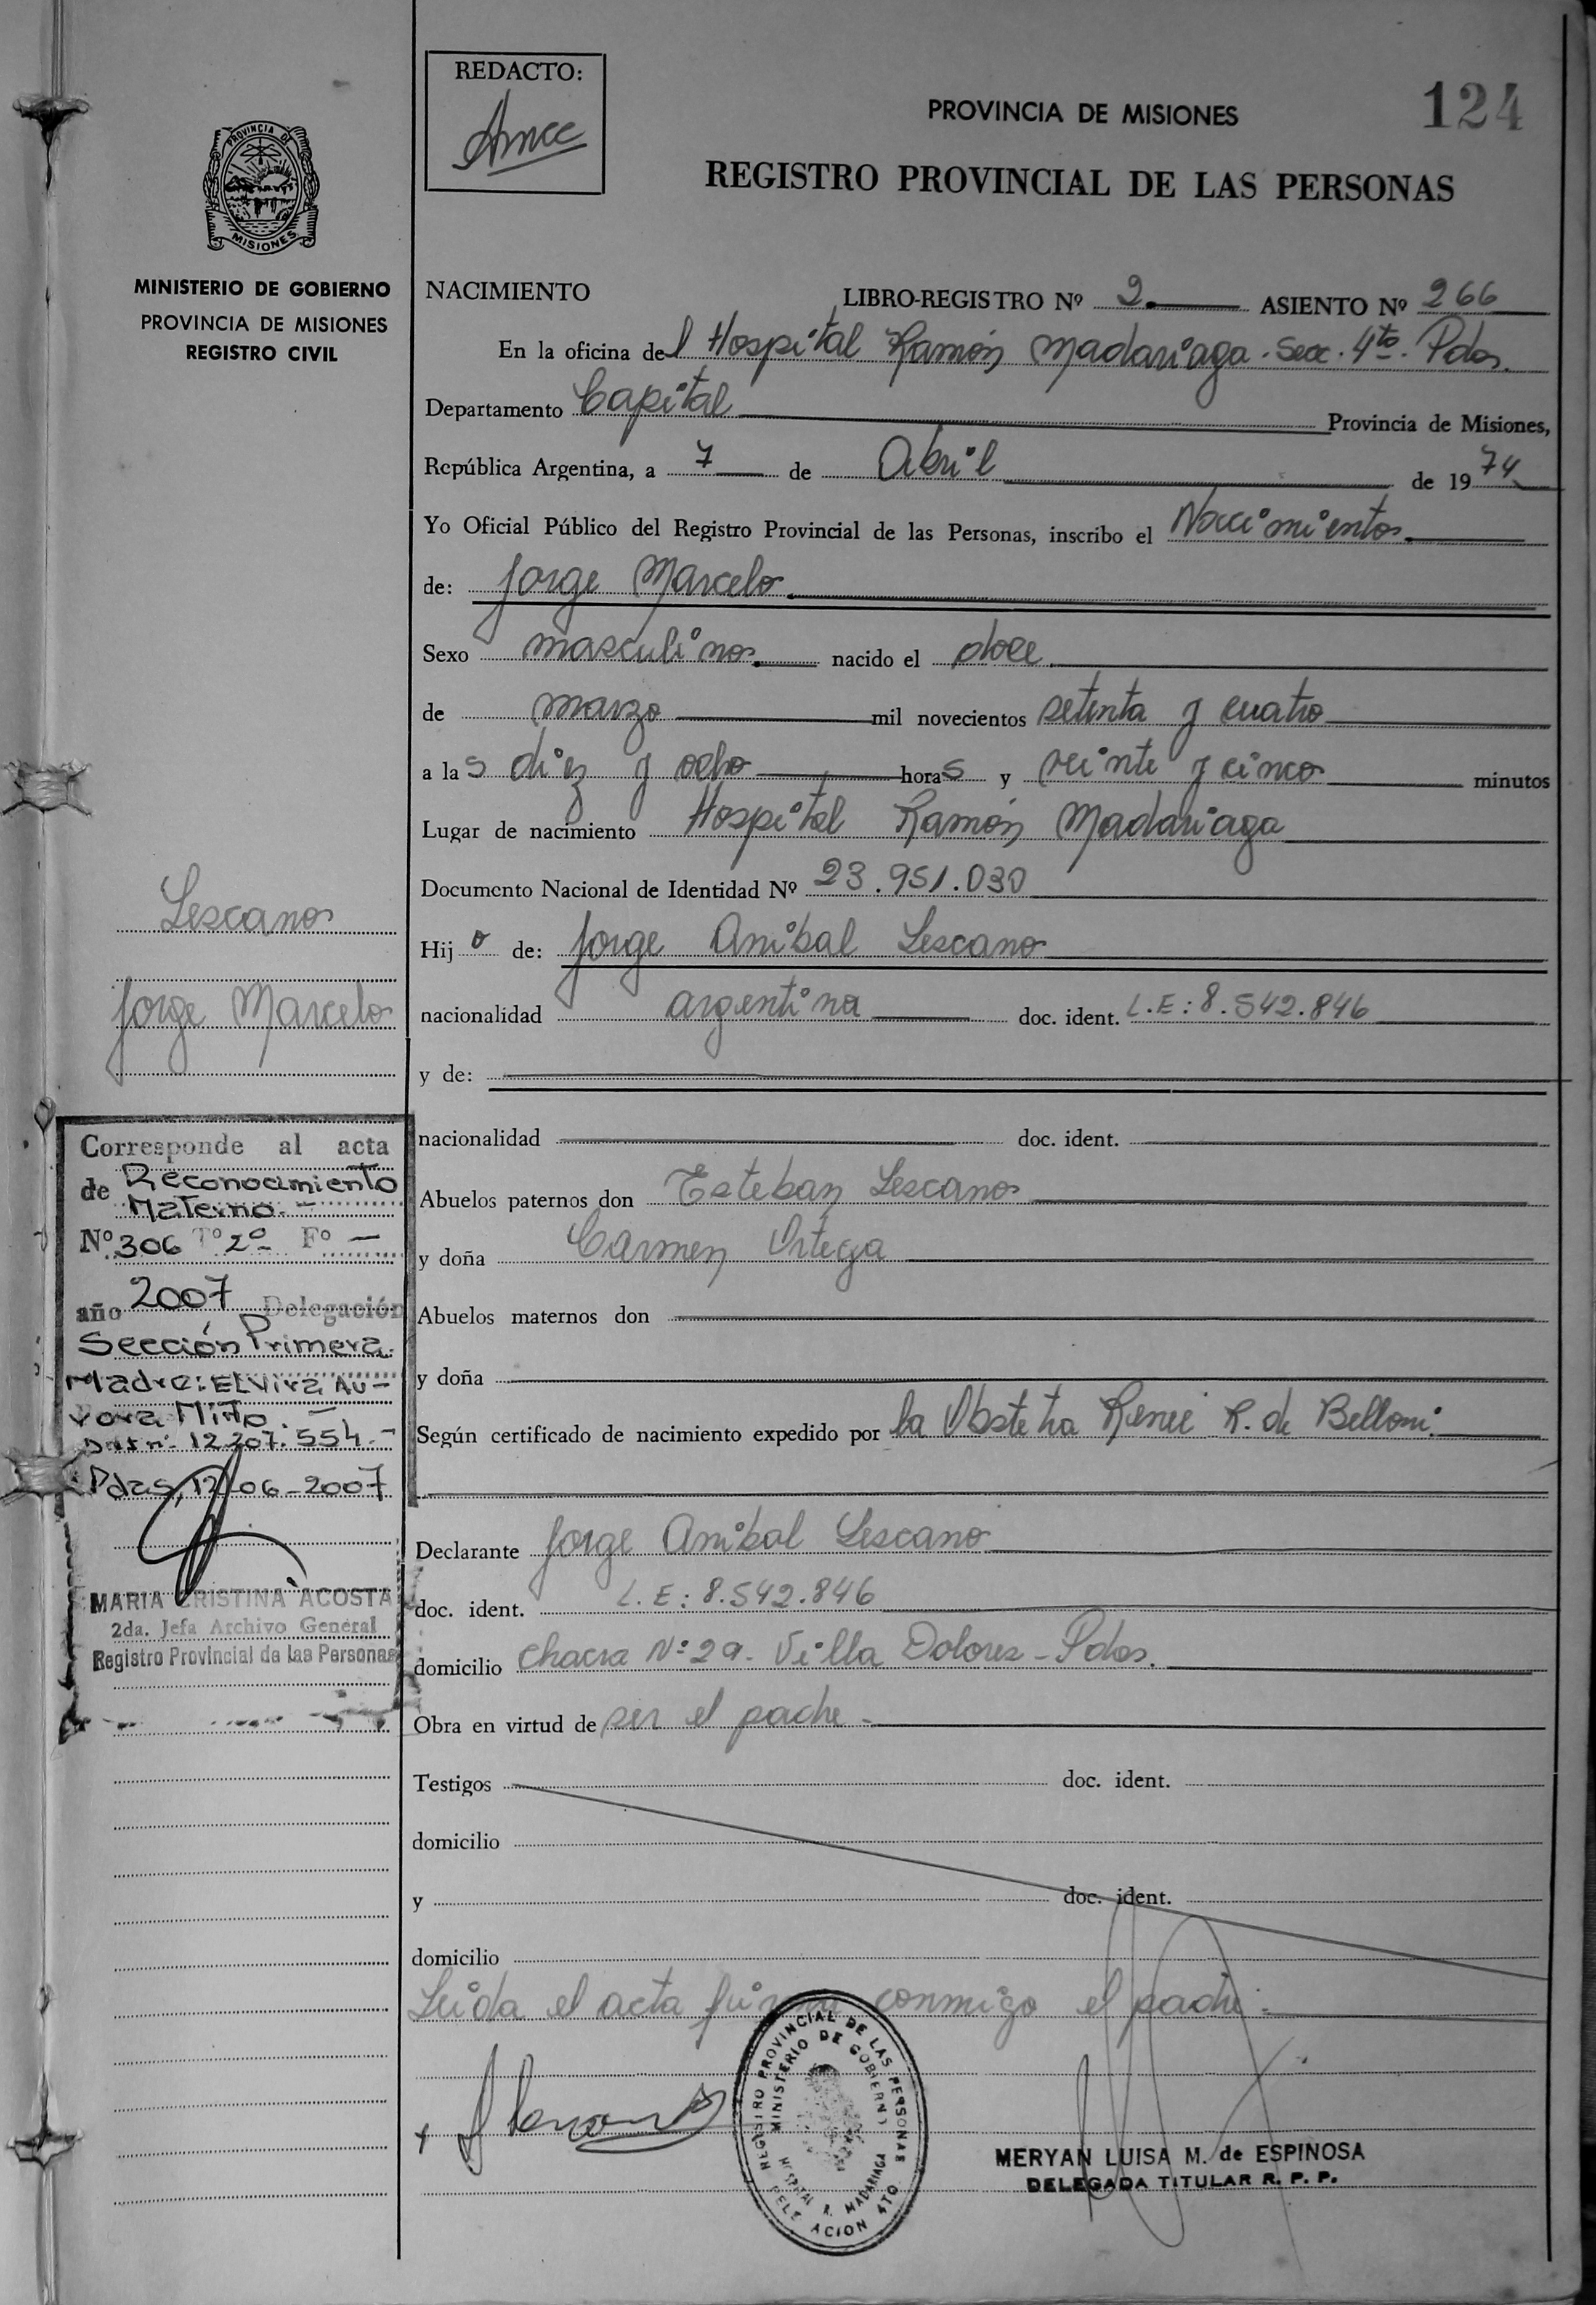 REDACTO:
PROVINCIA DE MISIONES
124
REGISTRO PROVINCIAL DE LAS PERSONAS
PROVINCIA DE
MISIONES
MINISTERIO DE GOBIERNO
PROVINCIA DE MISIONES
REGISTRO CIVIL
NACIMIENTO LIBRO-REGISTRO Nº 2 ASIENTO Nº 266
En la oficina del Hospital Ramón Madariaga. Secc. 4ta. Pdas.
Departamento Capital Provincia de Misiones,
República Argentina, a 7 de Abril de 1974
Yo Oficial Público del Registro Provincial de las Personas, inscribo el Nacimiento
de: Jorge Marcelo
Sexo masculino nacido el doce
de marzo mil novecientos setenta y cuatro
a las diez y ocho horas y veinte y cinco minutos
Lugar de nacimiento Hospital Ramón Madariaga
Documento Nacional de Identidad Nº 23.951.030
Hijo de: Jorge Anibal Lescano
nacionalidad argentina doc. ident. L.E: 8.542.846
y de:
nacionalidad doc. ident.
Abuelos paternos don Esteban Lescano
y doña Carmen Ortega
Abuelos maternos don
y doña
Según certificado de nacimiento expedido por la Obstetra Renee R. de Belloni.
Declarante Jorge Anibal Lescano
doc. ident. L.E: 8.542.846
domicilio Chacra Nº 29. Villa Dolores - Pdas.
Obra en virtud de ser el padre -
Testigos doc. ident.
domicilio
y doc. ident.
domicilio
Leida el acta firma conmigo el padre.
Lescano
Jorge Marcelo
Corresponde al acta
de Reconocimiento
Materno. -
Nº 306 Tº 2º Fº -
año 2007 Delegación
Sección Primera.
Madre: Elvira Au-
rora Miño. -
DNI nº 12.207.554. -
Pdas, 12/06-2007
MARIA CRISTINA ACOSTA
2da. Jefa Archivo General
Registro Provincial de las Personas
REGISTRO PROVINCIAL DE LAS PERSONAS
MINISTERIO DE GOBIERNO
HOSPITAL R. MADARIAGA
DELEGACION 4TO.
MERYAN LUISA M. de ESPINOSA
DELEGADA TITULAR R. P. P.